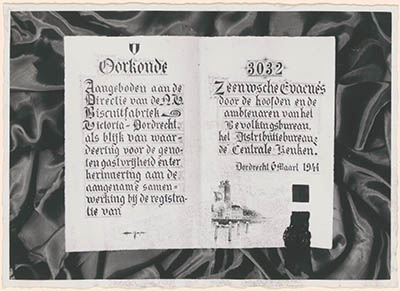 Oorkonde
Aangeboden aan de
Directie van de N.V.
Biscuitfabriek
Victoria - Dordrecht,
als blijk van waar-
deering voor de geno-
ten gastvrijheid en ter
herinnering aan de
aangename samen-
werking bij de registra-
tie van
3032
Zeeuwsche Evacué's
door de hoofden en de
ambtenaren van het
Bevolkingsbureau,
het Distributiebureau
de Centrale Keuken.
Dordrecht 6 Maart 1944